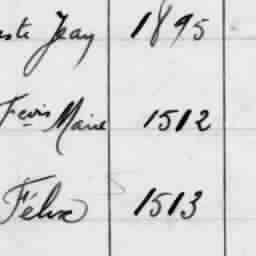 Jean 1895
Fcois Marie 1512
Félix 1513